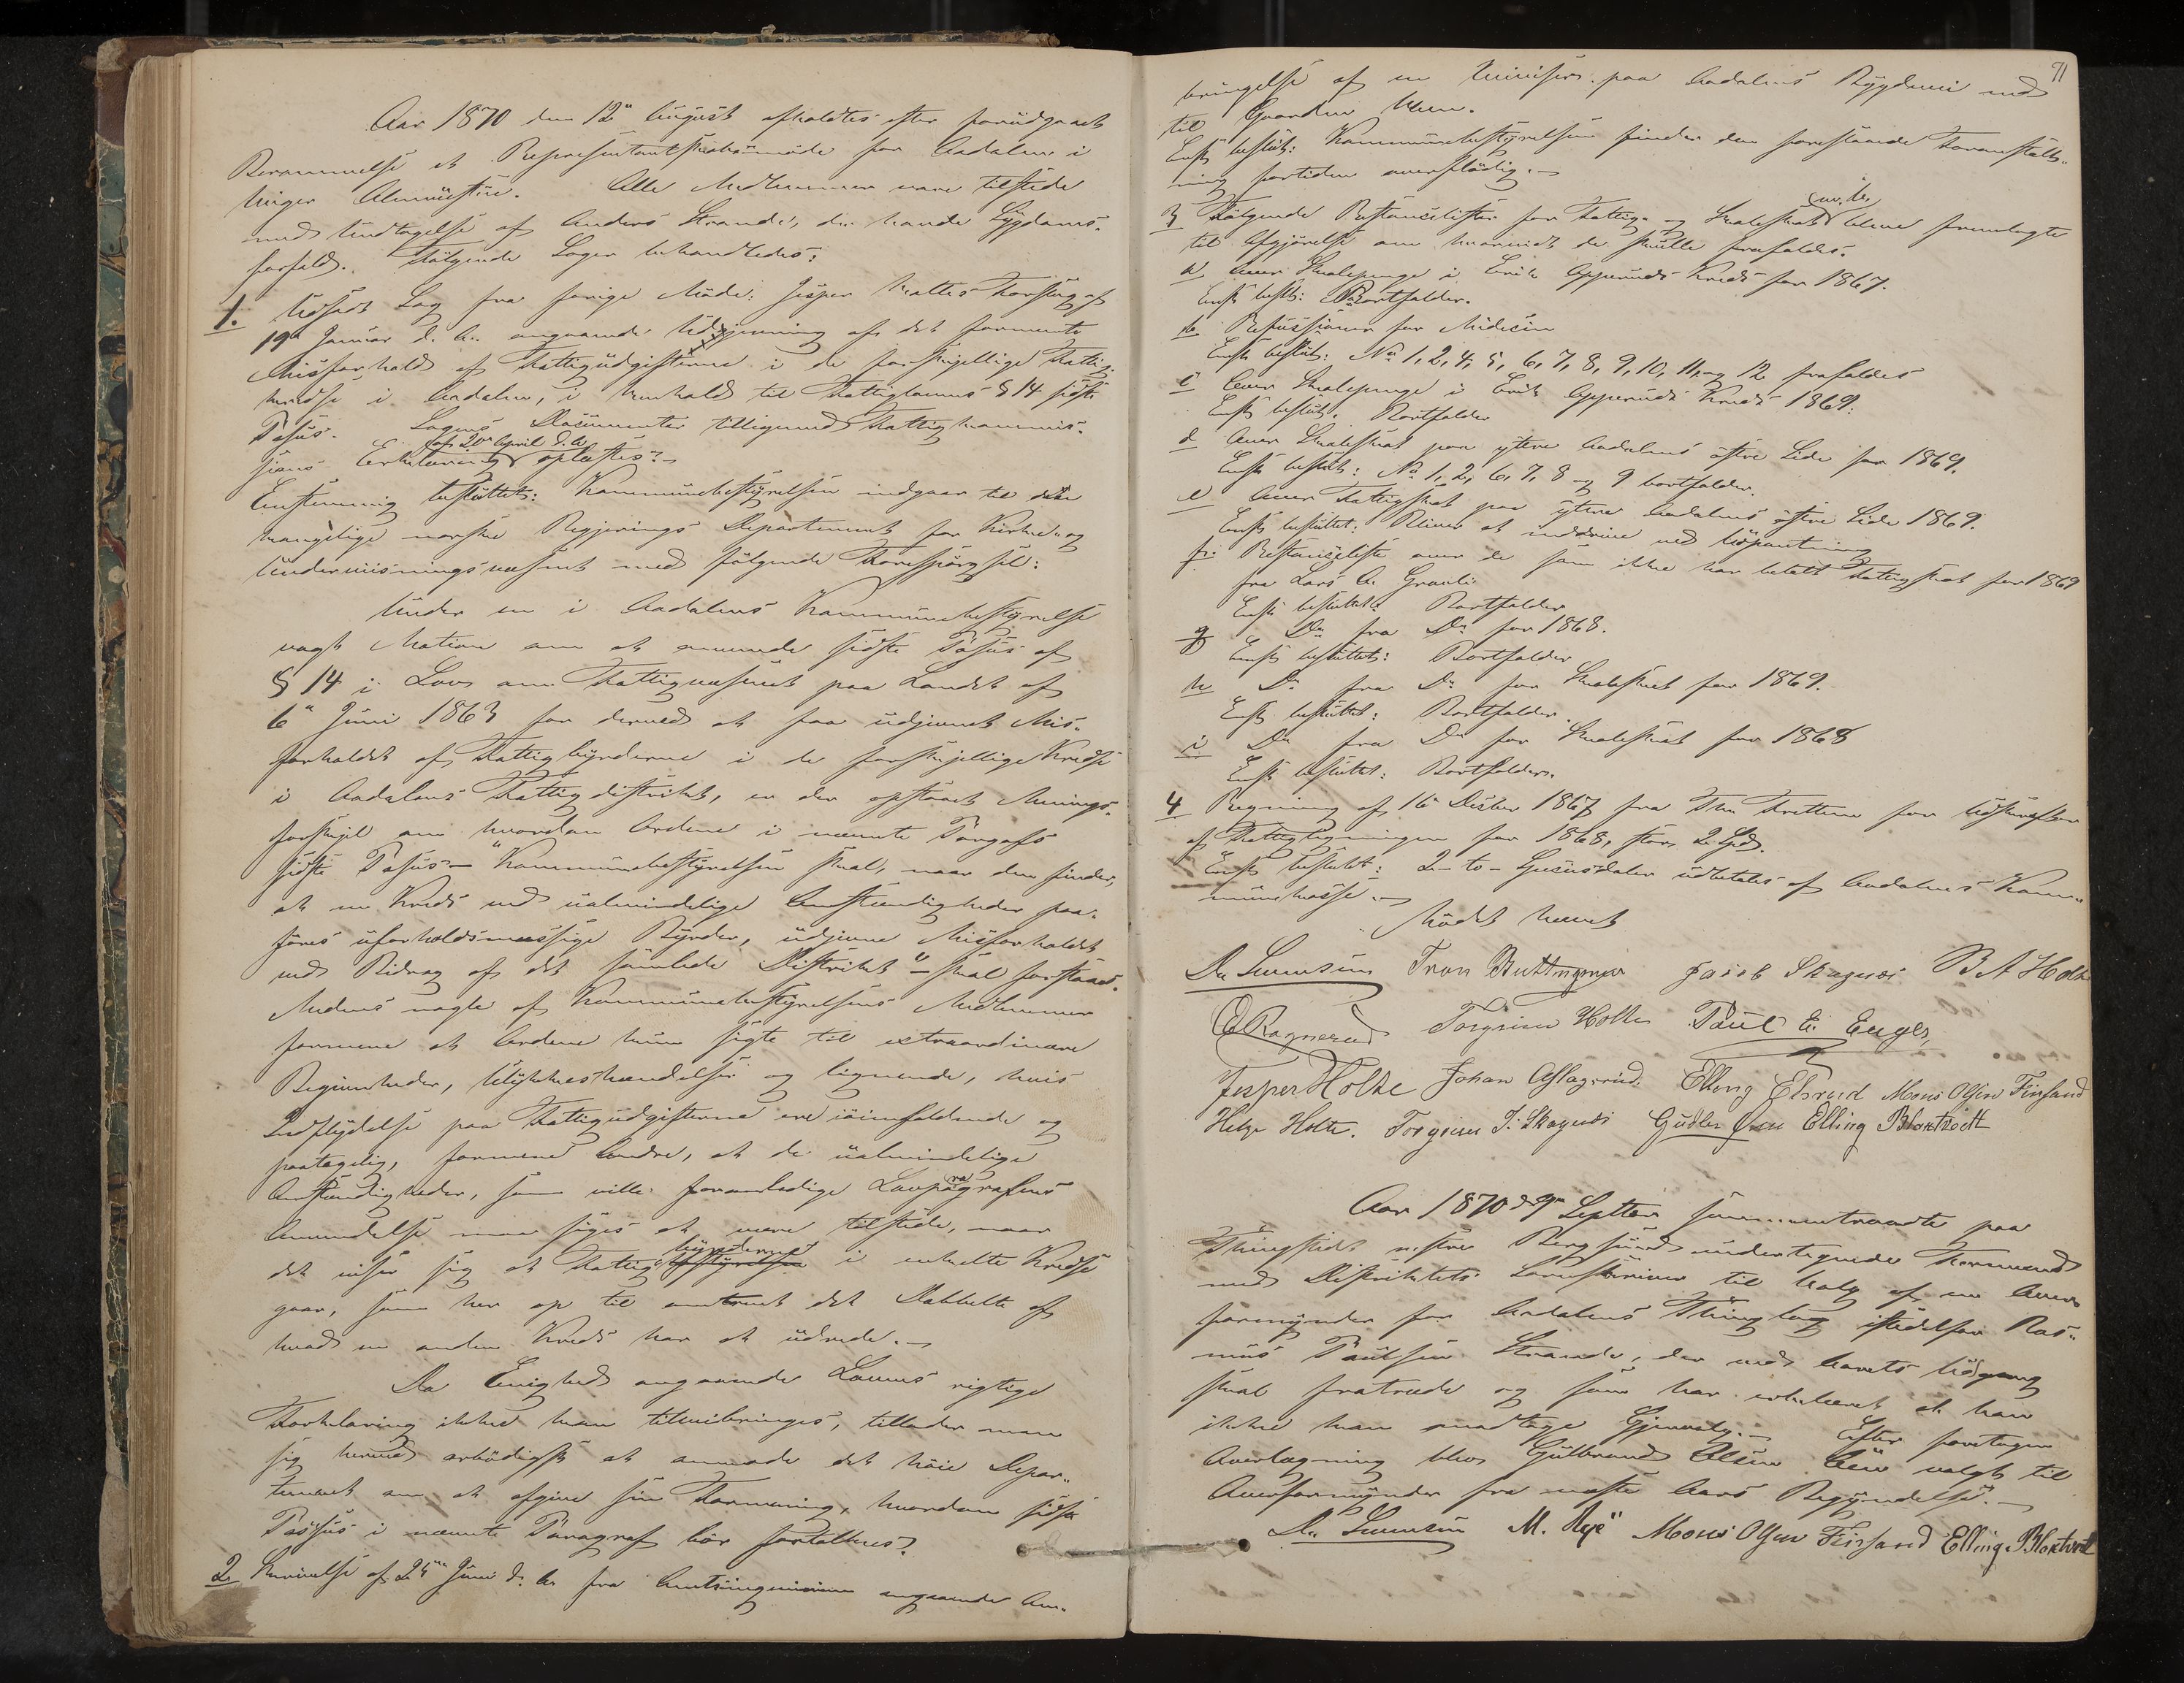 Aar 1870 den 12te August afholdtes efter forudgaaet
Berammelse et Repræsentantskabsmøde for Aadalen i
Almuestue. Alle Medlemmer vare tilstede
med Undtagelse af Anders Strande, der havde Sygdoms-
forfald. Følgende Sager behandledes:
1. Udsat Sag fra forige Møde: Jesper Holtes Forslag af
19de Januar d. A. angaaende Udjevning af det formente
Misforhold af Fattigudgifterne i de forskjellige Fattig-
kredse i Aadalen, i Henhold til Fattiglovens § 14 sidste
Passus. Sagens Documenter tilligemed Fattigkommis-
sions Erklæring af 20de April d. A. oplæstes.
Enstemmig besluttet: Kommunebestyrelsen indgaar til den
kongelige norske Regjerings Departement for Kirke- og
Undervisningsvæsenet med følgende Forespørgsel:
Under en i Aadalens Kommunebestyrelse
vagt Motion om at anvende sidste Passus af
§ 14 i Lov om Fattigvæsenet paa Landet af
6te Juni 1863 for derved at faa udjevnet Mis-
forholdet af Fattigbyrderne i de forskjellige Kredse
i Aadalens Fattigdistrikt, er der opstaaet Menings-
forskjel om hvordan Ordene i nævnte Paragrafs
sidste Passus - "Kommunebestyrelsen skal, naar den finder,
at en Kreds ved ualmindelige Omstændigheder paa-
føres uforholdsmæssige Byrder, udjevne Misforholdet
ved Bidrag af det samlede Distrikt" - skal forstaaes.
Medens nogle af Kommunebestyrelsens Medlemmer
formene at Ordene kun sigte til extraordinære
Begivenheder, Ulykkeshændelser og lignende, hvis
Indflydelse paa Fattigudgifterne ere iøinefaldende og
paatagelig, formene Andre, at de ualmindelige
Omstændigheder, som ville foranledige Lovparagrafens
Anvendelse maa siges at være tilstede, naar
det viser sig at Fattigbyrderne i enkelte Kredse
gaar, som her op til omtrent det Dobbelte af
hvad en anden Kreds har at udrede.
Da Enighed angaaende Lovens rigtige
Forklaring ikke kan tilveiebringes, tillader man
sig herved ærbødigst at anmode det høie Depar-
tement om at afgive sin Formening, hvordan sidste
Passus i nævnte Paragraf bør fortolkes.
2. Skrivelse af 24de Juni d. A. fra Amtsingeniøren angaaende An-
71
bringelse af en Veiviser paa Aadalens Bygdevei ned
til Gaarden Ween.
Enst. beslut: Kommunebestyrelsen finder den foreslaaede Foranstalt-
ning fortiden overflødig.
3 Følgende Restancelister for Fattig- og Skoleskat m. v. bleve fremlagte
til Afgjørelse om hvorvidt de skulle frafaldes.
a over Skolepenge i Erik Opperuds Kreds for 1867.
Enst. beslt: Bortfalder.
b Refussioner for Medicin
Enst. beslut: No 1, 2, 4, 5, 6, 7, 8, 9, 10, 11, og 12 frafaldes
c over Skolepenge i Erik Opperuds Kreds 1869.
Enst. beslut: Bortfalder
d over Skoleskat paa ytre Aadalens østre Side for 1869.
Enst. beslut: No 1, 2, 6, 7, 8 og 9 bortfalder.
e over Fattigskat paa ytre Aadalens østre Side 1869.
Enst. besluttet: Bliver at inddrive ved Udpantning
f. Restanceliste over de som ikke har betalt Fattigskat for 1869
fra Lars A. Granli
Enst. besluttet: Bortfalder
g Do fra Do for 1868.
Enst. besluttet: Bortfalder
h Do fra Do for Skoleskat for 1869.
Enst. besluttet: Bortfalder.
i Do fra Do for Skoleskat for 1868
Enst. besluttet: Bortfalder.
4 Regning af 16 Decbr 1867 fra for Udskrift
af Fattigligningen for 1868, stor 2 Spd.
Enst. besluttet: 2 - to - Speciesdaler udbetales af Aadalens Kom-
munekasse.
Mødet hævet
Tron Jacob Skagnæs B A Holte
Torgrim Holte Paul E. Enger,
Jesper Holte Johan Aslagsrud Elling Elsrud Mons Olsen Finsand
Helge Holte. Torgrim T. Skagnæs Gudbr Elling Bloktvedt
Aar 1870 d 9de Septbr sammentraadte paa
Thingstedet vestre Bergsund undertegnede Formænd
med Distriktets Sorenskriver til Valg af en Over-
formynder for Aadalens Thinglag istedetfor Ras-
mus Paulsen Strande, der ved Aarets Udgang
skal fratræde og som har erklæret at han
ikke kan modtage Gjenvalg. Efter foretagen
Overlægning blev Gulbrand Olsen valgt til
Overformynder fra næste Aars Begyndelse.
M. Rye Mons Olsen Finsand Elling Bloktvedt